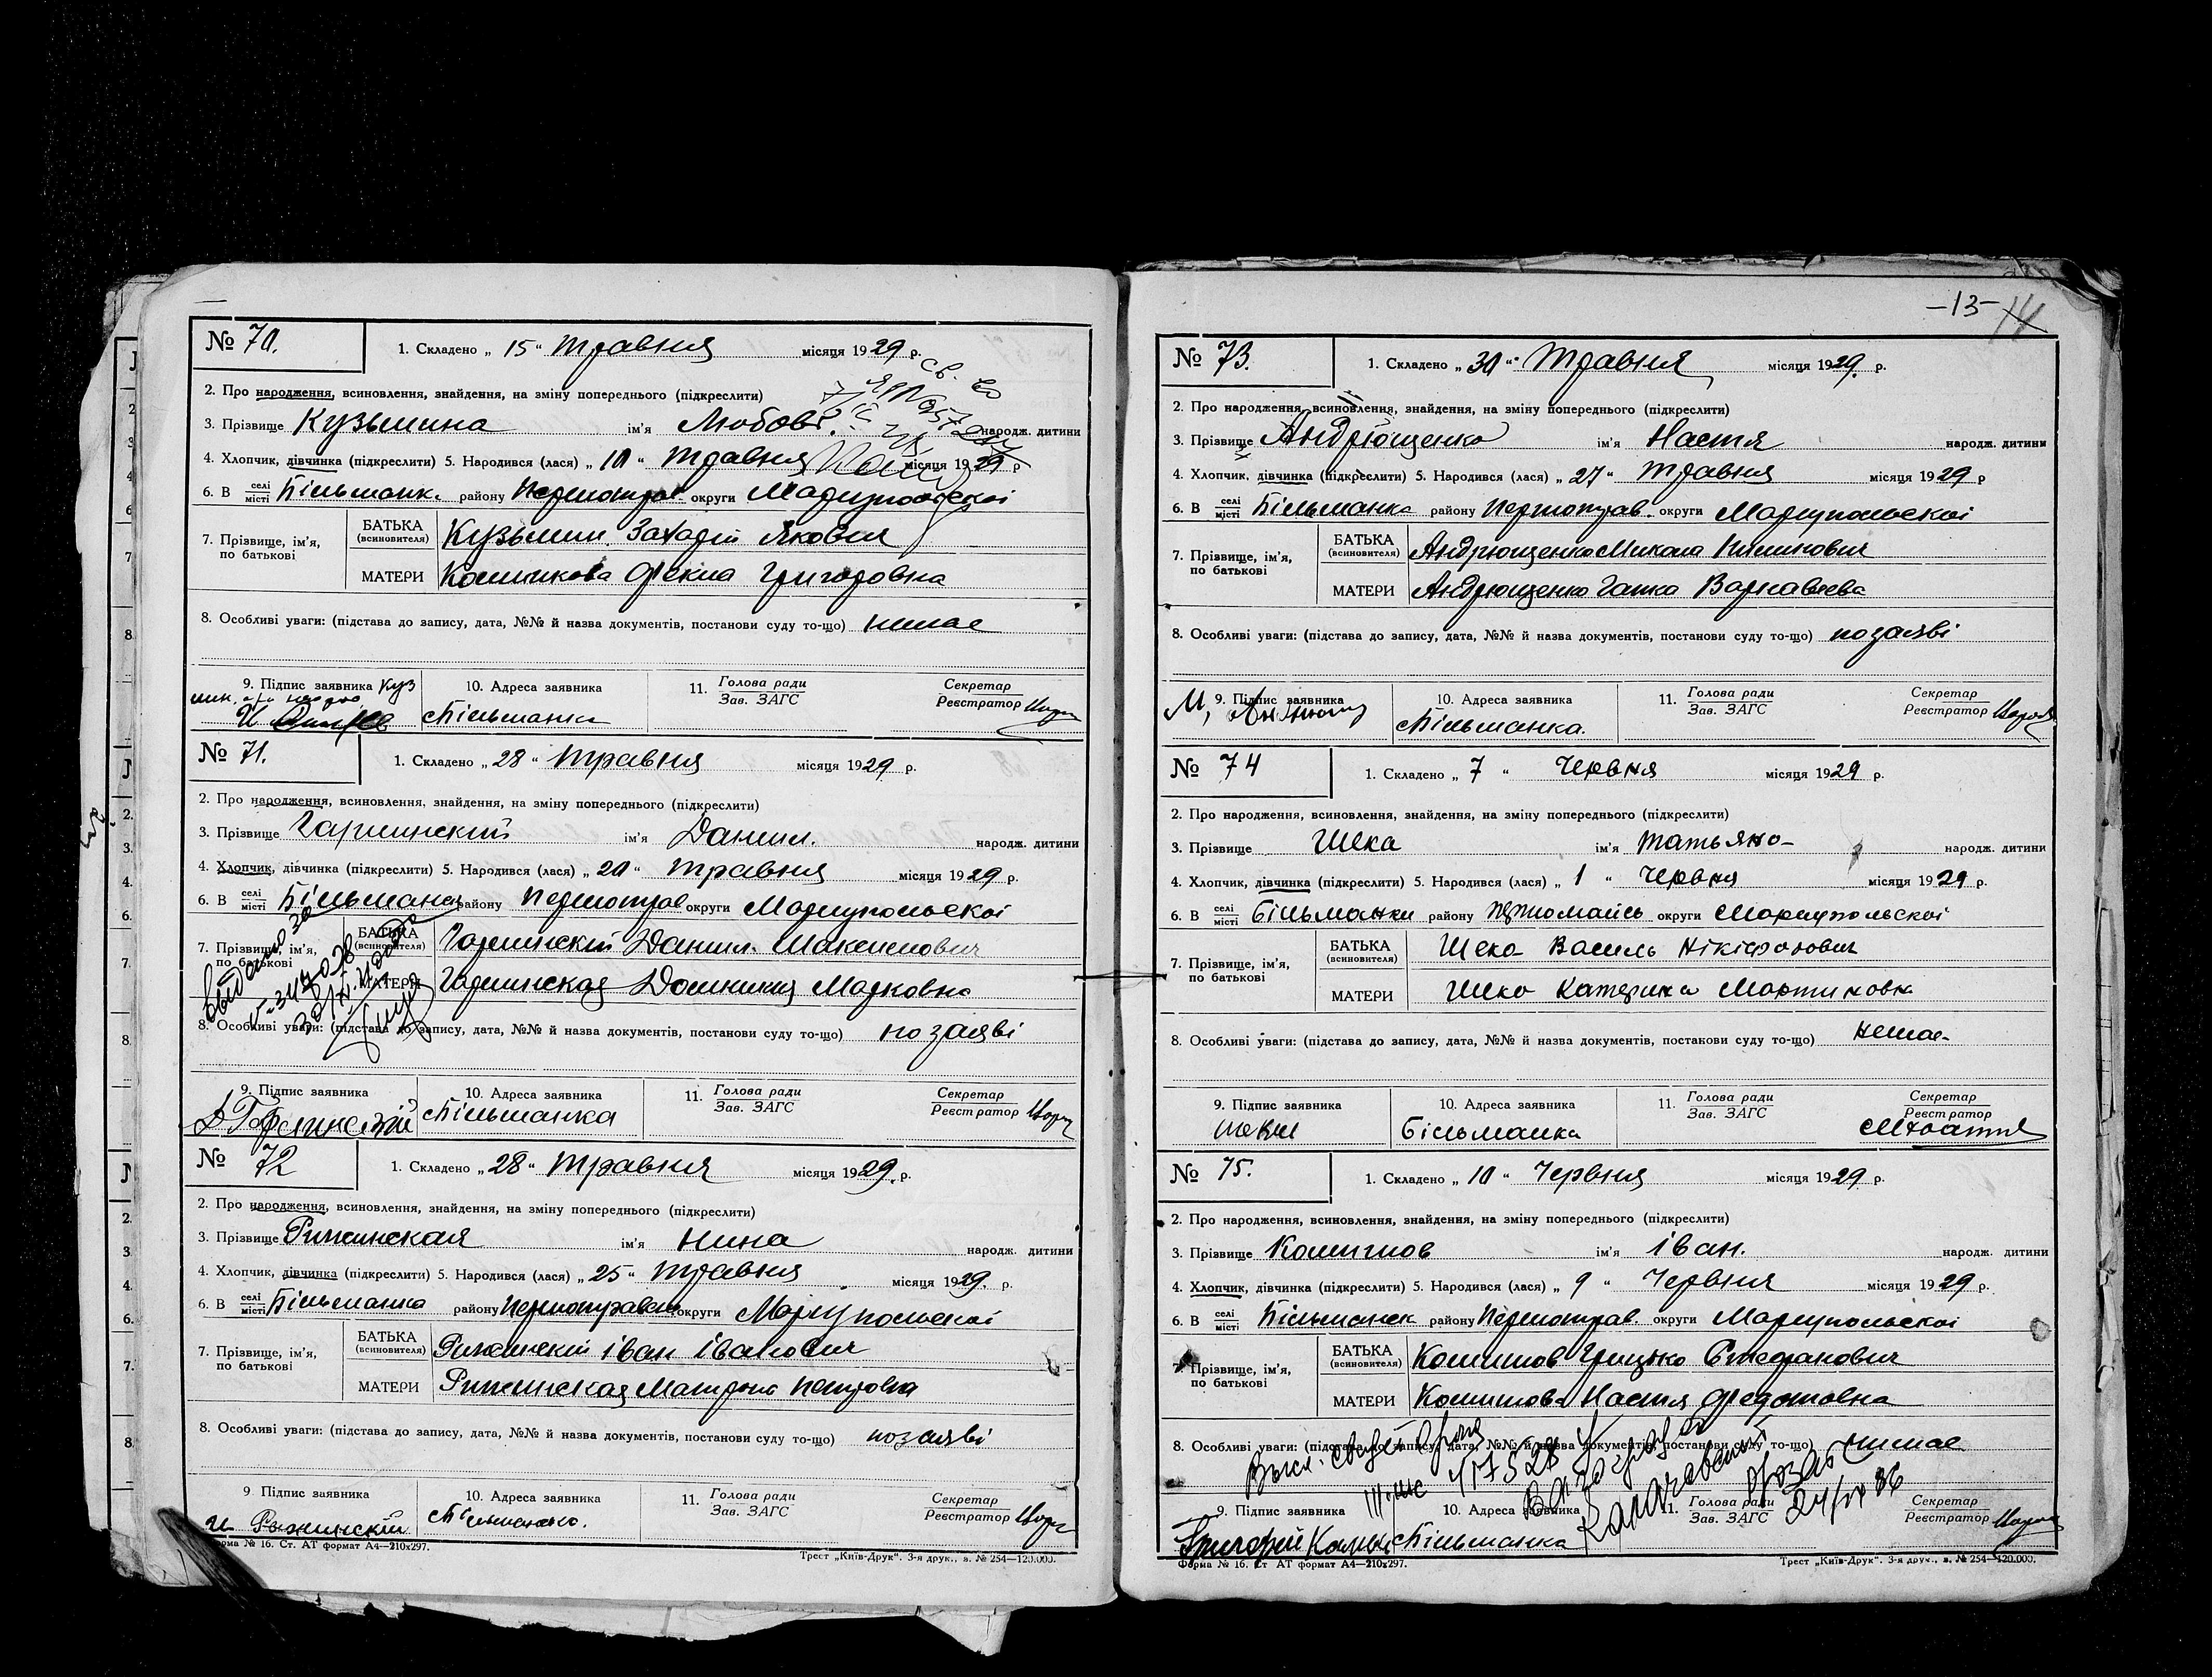 № 70. 1. Складено „ 15 “ травня місяця 1929 р.
2. Про народження, всиновлення, знайдення, на зміну попереднього (підкреслити)
3. Прізвище Кузьмина ім'я Любов. народж. дитини
4. Хлопчик, дівчинка (підкреслити) 5. Народився (лася) „ 10 “ травня місяця 1929 р
6. В селі місті Більманк. району округи Маріупольскоі
7. Прізвище, ім'я, по батькові БАТЬКА (всиновителя) Кузьмин Захарій Якович
МАТЕРИ Григоровна
8. Особливі уваги: (підстава до запису, дата, №№ й назва документів, постанови суду то-що) немає
9. Підпис заявника Куз 10. Адреса заявника 11. Голова ради Зав. ЗАГС Секретар Реєстратор
Більманка
№ 71. 1. Складено „ 28 “ травня місяця 1929 р.
2. Про народження, всиновлення, знайдення, на зміну попереднього (підкреслити)
3. Прізвище ім'я Данил. народж. дитини
4. Хлопчик, дівчинка (підкреслити) 5. Народився (лася) „ 20 “ травня місяця 1929 р.
6. В селі місті Більманка району округи Маріупольскоі
7. Прізвище, ім'я, по батькові БАТЬКА (всиновителя) Данил Максимович
МАТЕРИ Марковна
8. Особливі уваги: (підстава до запису, дата, №№ й назва документів, постанови суду то-що) по заяві
9. Підпис заявника 10. Адреса заявника 11. Голова ради Зав. ЗАГС Секретар Реєстратор
Більманка
№ 72 1. Складено „ 28 “ травня місяця 1929. р.
2. Про народження, всиновлення, знайдення, на зміну попереднього (підкреслити)
3. Прізвище Рижинская ім'я Нина народж. дитини
4. Хлопчик, дівчинка (підкреслити) 5. Народився (лася) „ 25 “ травня місяця 1929. р.
6. В селі місті Більманка району округи Маріупольскоі
7. Прізвище, ім'я, по батькові БАТЬКА (всиновителя) Рижинскій Іван Іванович
МАТЕРИ Рижинская Матрона Петровна
8. Особливі уваги: (підстава до запису, дата, №№ й назва документів, постанови суду то-що) по заяві
9 Підпис заявника 10. Адреса заявника 11. Голова ради Зав. ЗАГС Секретар Реєстратор
и Рыжинскій Більманка.
Форма № 16. Ст. АТ формат А4—210x297. Трест „Київ-Друк“. 3-я друк., з. № 254—120.000.
—13— 14
№ 73. 1. Складено „ 30 “ травня місяця 1929. р.
2. Про народження, всиновлення, знайдення, на зміну попереднього (підкреслити)
3. Прізвище Андрющенко ім'я Настя народж. дитини
4. Хлопчик, дівчинка (підкреслити) 5. Народився (лася) „ 27 “ травня місяця 1929 р
6. В селі місті Більманка району округи Маріупольскоі
7. Прізвище, ім'я, по батькові БАТЬКА (всиновителя) Андрющенко Микола
МАТЕРИ Андрющенко Ганка
8. Особливі уваги: (підстава до запису, дата, №№ й назва документів, постанови суду то-що) по заяві
9. Підпис заявника 10. Адреса заявника 11. Голова ради Зав. ЗАГС Секретар Реєстратор
Більманка.
№ 74 1. Складено „ 7 “ Червня місяця 1929 р.
2. Про народження, всиновлення, знайдення, на зміну попереднього (підкреслити)
3. Прізвище Шека ім'я Татьяно- народж. дитини
4. Хлопчик, дівчинка (підкреслити) 5. Народився (лася) „ 1 “ Червня місяця 1929 р.
6. В селі місті Більманки району округи Маріупольскоі
7. Прізвище, ім'я, по батькові БАТЬКА (всиновителя) Шека Василь Нікіфорович
МАТЕРИ Шека Катерина Мартиновн
8. Особливі уваги: (підстава до запису, дата, №№ й назва документів, постанови суду то-що) немає-
9. Підпис заявника 10. Адреса заявника 11. Голова ради Зав. ЗАГС Секретар Реєстратор
Більманка
№ 75. 1. Складено „ 10 “ Червня місяця 1929 р.
2. Про народження, всиновлення, знайдення, на зміну попереднього (підкреслити)
3. Прізвище ім'я Іван. народж. дитини
4. Хлопчик, дівчинка (підкреслити) 5. Народився (лася) „ 9 “ Червня місяця 1929 р.
6. В селі місті Більманск району округи Маріупольскоі
7. Прізвище, ім'я, по батькові БАТЬКА (всиновителя) Грицько Стефанович
МАТЕРИ Настя Федотовна
8. Особливі уваги: (підстава до запису, дата, №№ й назва документів, постанови суду то-що) немає
9. Підпис заявника 10. Адреса заявника 11. Голова ради Зав. ЗАГС Секретар Реєстратор
Григорий Більманка
Форма № 16. Ст АТ формат А4—210x297. Трест „Київ-Друк“. 3-я друк., з. № 254—120.000.